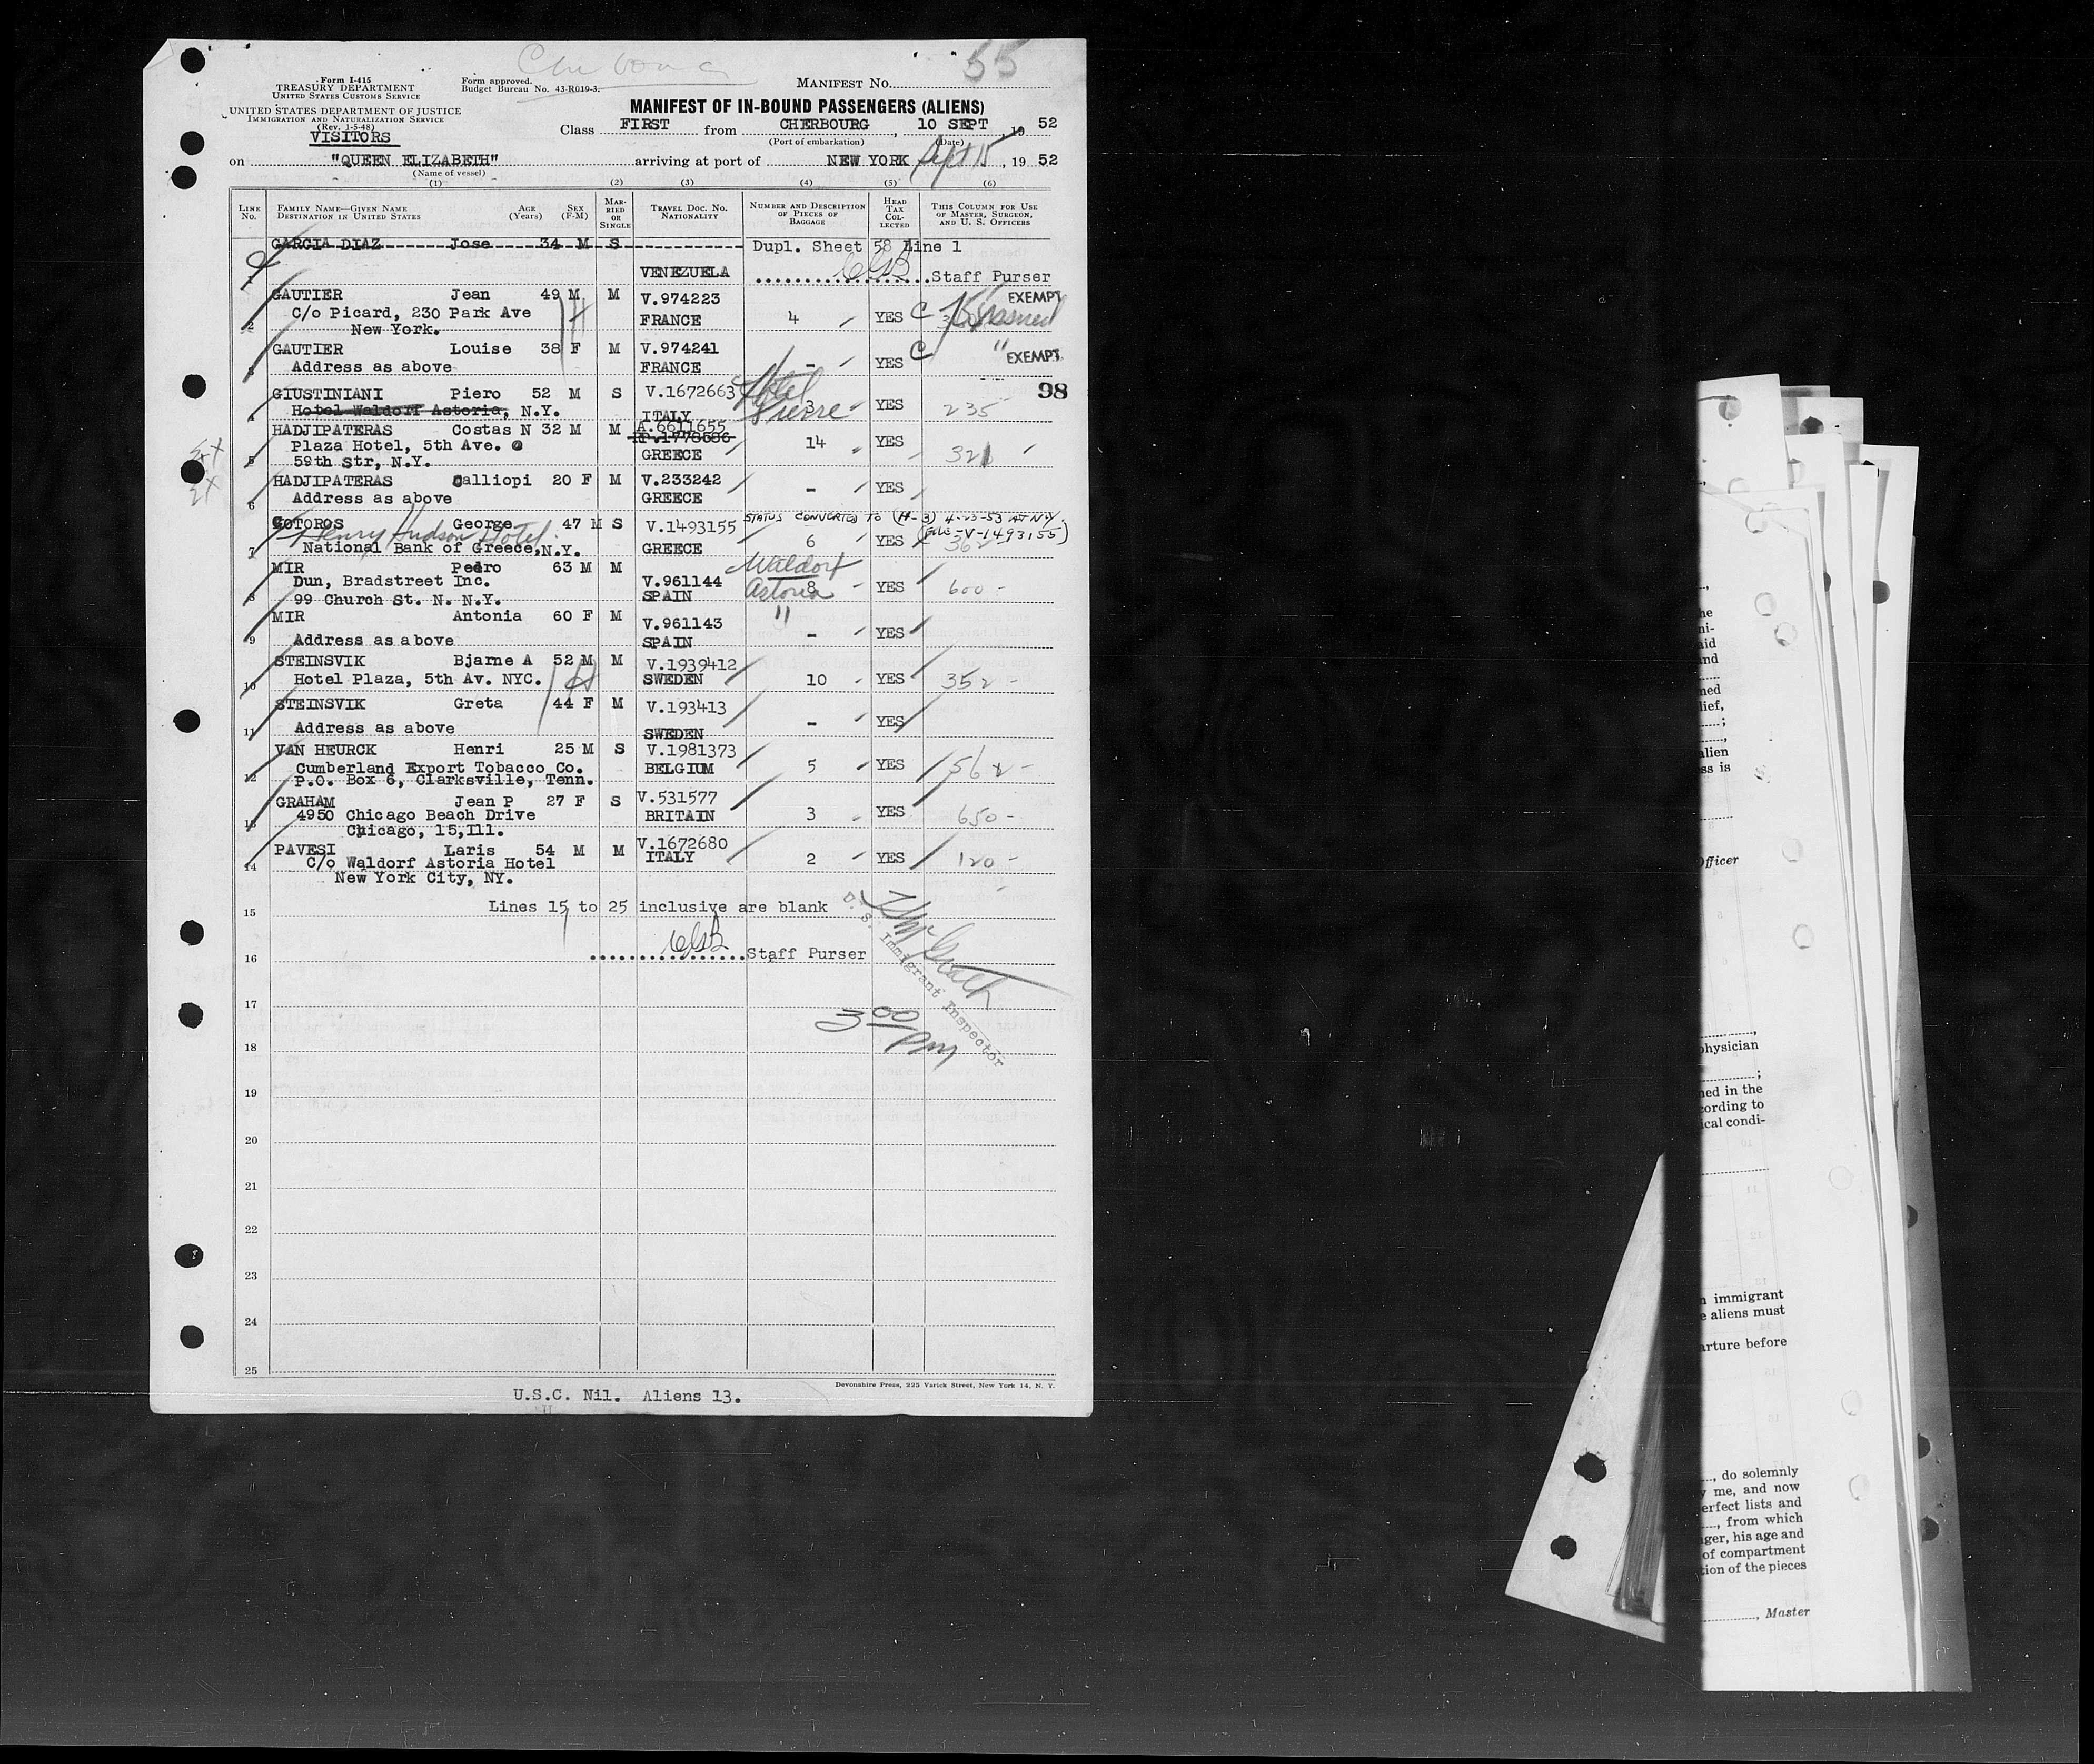 Cherbourg
55
Form I-415
TREASURY DEPARTMENT
UNITED STATES CUSTOMS SERVICE
Form approved.
Budget Bureau No. 43-R019-3.
MANIFEST NO.
UNITED STATES DEPARTMENT OF JUSTICE
IMMIGRATION AND NATURALIZATION SERVICE
(Rev. 1-5-48)
MANIFEST OF IN-BOUND PASSENGERS (ALIENS)
VISITORS
Class FIRST from CHERBOURG, 10 SEPT, 19 52
(Port of embarkation) (Date)
on "QUEEN ELIZABETH" arriving at port of NEW YORK Sept 15, 19 52
(Name of vessel)
(1) (2) (3) (4) (5) (6)
LINE NO. FAMILY NAME—GIVEN NAME DESTINATION IN UNITED STATES AGE (Years) SEX (F-M) MARRIED OR SINGLE TRAVEL DOC. NO. NATIONALITY NUMBER AND DESCRIPTION OF PIECES OF BAGGAGE HEAD TAX COLLECTED THIS COLUMN FOR USE OF MASTER, SURGEON, AND U. S. OFFICERS
GARCIA DIAZ Jose 34 M S Dupl. Sheet 58 Line 1
1 VENEZUELA Staff Purser
GAUTIER Jean 49 M M V.974223 EXEMPT
C/o Picard, 230 Park Ave FRANCE 4 YES C
2 New York.
GAUTIER Louise 38 F M V.974241 C " EXEMPT
3 Address as above FRANCE - YES
98
GIUSTINIANI Piero 52 M S V.1672663 Hotel Pierre
4 Hotel Waldorf Astoria, N.Y. ITALY 3 YES 235
HADJIPATERAS Costas N 32 M M A.6611655
Plaza Hotel, 5th Ave. @ 14 YES
5 59th Str, N.Y. GREECE 321
HADJIPATERAS Calliopi 20 F M V.233242 - YES
6 Address as above GREECE
STATUS CONVERTED TO (H-3) 4-23-53 AT N.Y.
(FILE-V-1493155)
GOTOROS George 47 M S V.1493155
Henry Hudson Hotel
7 National Bank of Greece, N.Y. GREECE 6 YES 362
MIR Pedro 63 M M Waldorf
Dun, Bradstreet Inc. V.961144 Astoria 8 YES 600 -
8 99 Church St. N. N.Y. SPAIN
MIR Antonia 60 F M V.961143 "
9 Address as above SPAIN - YES
STEINSVIK Bjarne A 52 M M V.1939412
10 Hotel Plaza, 5th Av. NYC. SWEDEN 10 YES 352 -
STEINSVIK Greta 44 F M V.193413
11 Address as above SWEDEN - YES
VAN HEURCK Henri 25 M S V.1981373
Cumberland Export Tobacco Co. BELGIUM 5 YES 562 -
12 P.O. Box 6, Clarksville, Tenn.
GRAHAM Jean P 27 F S V.531577
4950 Chicago Beach Drive BRITAIN 3 YES 650 -
13 Chicago, 15, Ill.
PAVESI Laris 54 M M V.1672680
C/o Waldorf Astoria Hotel ITALY 2 YES 120 -
14 New York City, NY.
15 Lines 15 to 25 inclusive are blank
U. S. Immigrant Inspector
16 Staff Purser
17
3 00 PM
18
19
20
21
22
23
24
25
Devonshire Press, 225 Varick Street, New York 14, N. Y.
U.S.C. Nil. Aliens 13.
he
ni-
aid
and
ned
lief,
alien
ss is
Officer
physician
ned in the
cording to
ical condi-
immigrant
e aliens must
arture before
, do solemnly
me, and now
erfect lists and
, from which
nger, his age and
of compartment
tion of the pieces
, Master